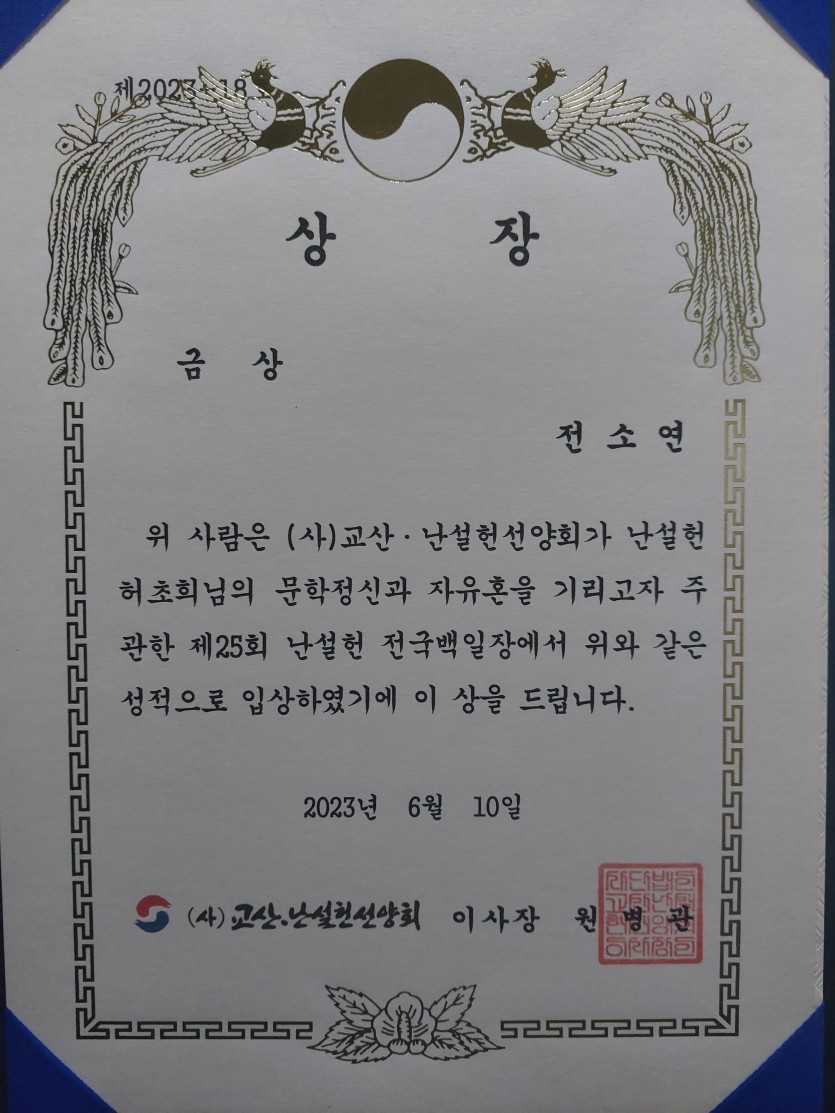 제2023-18
상 장
금 상
전 소 연
위 사람은 (사)교산·난설헌선양회가 난설헌
허초희님의 문학정신과 자유혼을 기리고자 주
관한 제25회 난설헌 전국백일장에서 위와 같은
성적으로 입상하였기에 이 상을 드립니다.
2023년 6월 10일
(사)교산·난설헌선양회 이사장 원 병 관